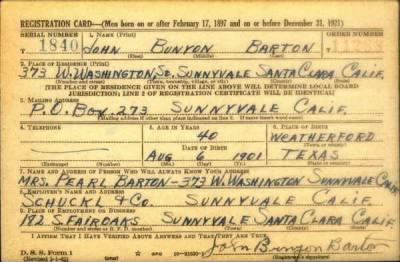 REGISTRATION CARD—(Men born on or after February 17, 1897 and on or before December 31, 1921)
SERIAL NUMBER 1. NAME (Print) ORDER NUMBER
1840 JOHN BUNYON BARTON
2. PLACE OF RESIDENCE (Print)
373 W. WASHINGTON, SUNNYVALE SANTA CLARA CALIF.
(Number and street) (Town, township, village, or city) (County) (State)
[THE PLACE OF RESIDENCE GIVEN ON THE LINE ABOVE WILL DETERMINE LOCAL BOARD
JURISDICTION; LINE 2 OF REGISTRATION CERTIFICATE WILL BE IDENTICAL]
3. MAILING ADDRESS
P.O. BOX 273 SUNNYVALE CALIF.
[Mailing address if other than place indicated on line 2. If same insert word same]
4. TELEPHONE 5. AGE IN YEARS 6. PLACE OF BIRTH
40 WEATHERFORD
DATE OF BIRTH
AUG 6 1901 TEXAS
7. NAME AND ADDRESS OF PERSON WHO WILL ALWAYS KNOW YOUR ADDRESS
MRS. PEARL BARTON-373 W. WASHINGTON SUNNYVALE CALIF
8. EMPLOYER'S NAME AND ADDRESS
SCHUCKL & CO. SUNNYVALE CALIF.
9. PLACE OF EMPLOYMENT OR BUSINESS
182 S. FAIROAKS SUNNYVALE SANTA CLARA CALIF.
(Number and street or R. F. D. number) (Town) (County) (State)
I AFFIRM THAT I HAVE VERIFIED ABOVE ANSWERS AND THAT THEY ARE TRUE.
D. S. S. Form 1
John Bunyon Barton